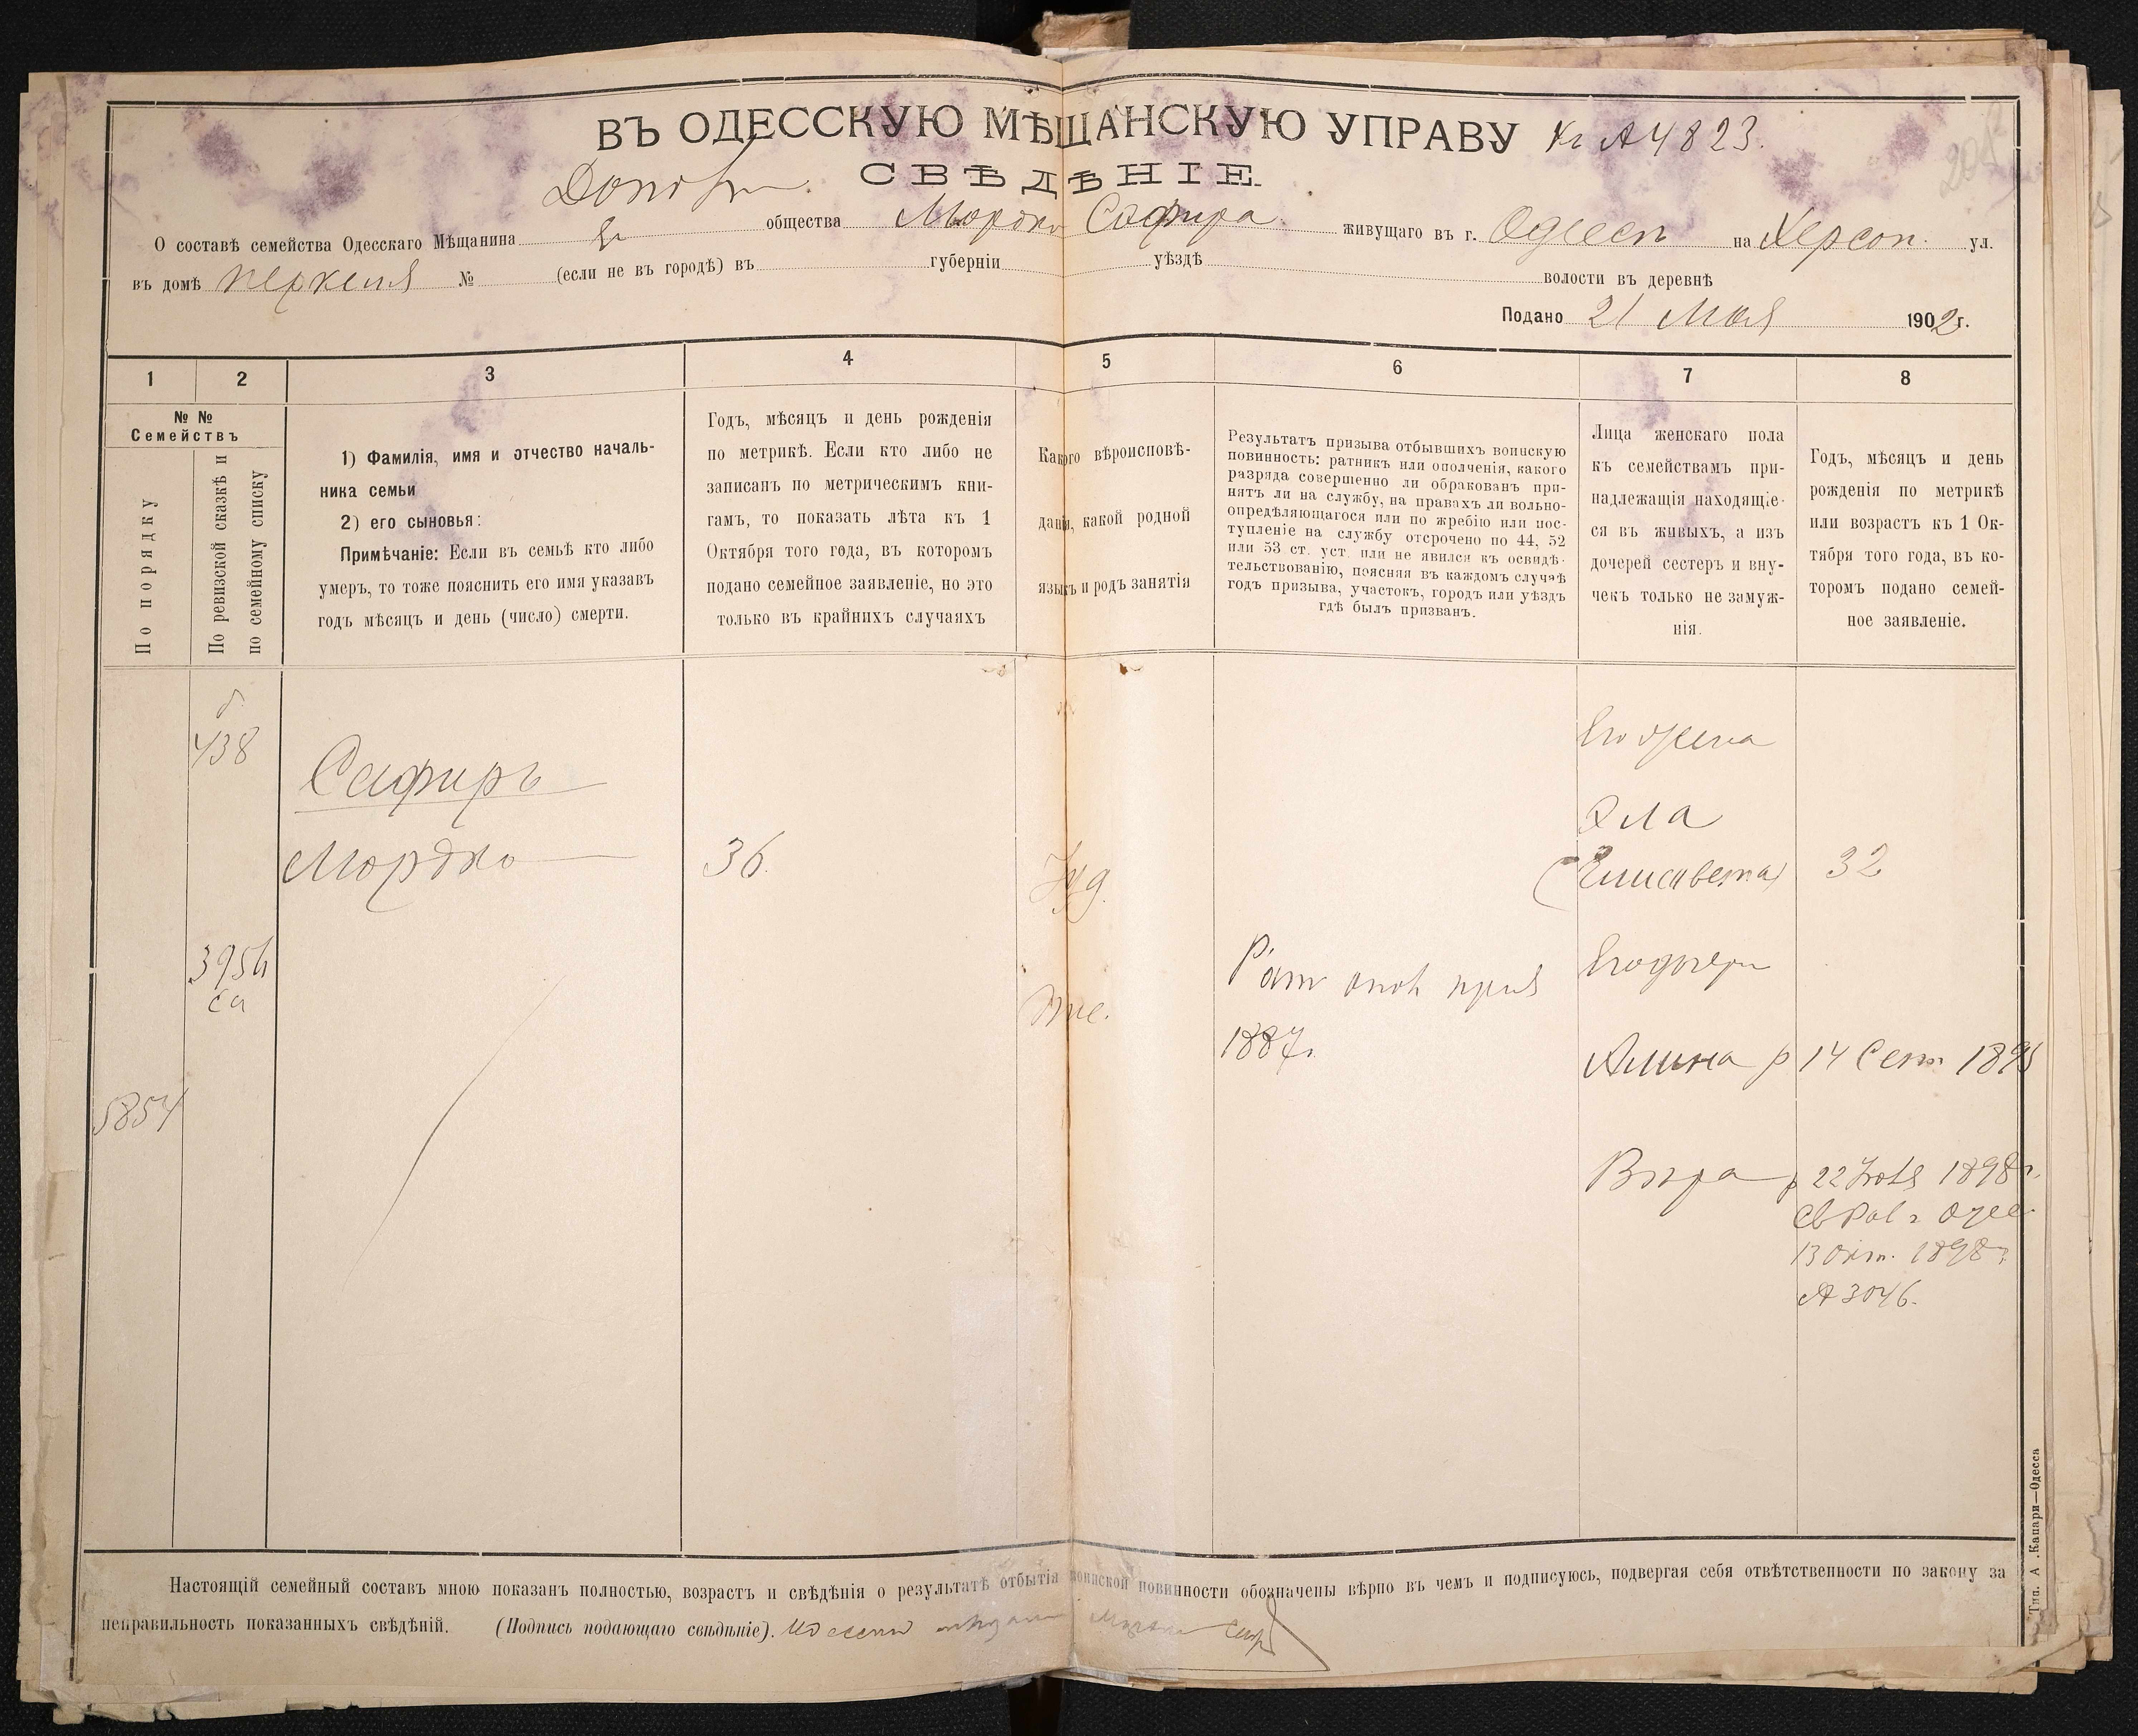 ВЪ ОДЕССКУЮ МѢЩАНСКУЮ УПРАВУ Кг № 4823.
СВѢДѢНІЕ.
О составѣ семейства Одесскаго Мѣщанина Ев общества Мордко Сафира живущаго въ г. Одессѣ на Херсон. ул.
въ домѣ № (если не въ городѣ) въ губерніи уѣздѣ волости въ деревнѣ
Подано 21 Мая 1902 г.
1 2 3 4 5 6 7 8
№ №
Семействъ
По порядку
По ревизской сказкѣ и
по семейному списку
1) Фамилія, имя и отчество началь-
ника семьи
2) его сыновья:
Примѣчаніе: Если въ семьѣ кто либо
умеръ, то тоже пояснить его имя указавъ
годъ мѣсяцъ и день (число) смерти.
Годъ, мѣсяцъ и день рожденія
по метрикѣ. Если кто либо не
записанъ по метрическимъ кни-
гамъ, то показать лѣта къ 1
Октября того года, въ которомъ
подано семейное заявленіе, но это
только въ крайнихъ случаяхъ
Какого вѣроисповѣ-
данія, какой родной
языкъ и родъ занятія
Результатъ призыва отбывшихъ воинскую
повинность: ратникъ или ополченія, какого
разряда совершенно ли обракованъ при-
нятъ ли на службу, на правахъ ли вольно-
опредѣляющагося или по жребію или пос-
тупленіе на службу отсрочено по 44, 52
или 53 ст. уст. или не явился къ освидѣ-
тельствованію, поясняя въ каждомъ случаѣ
годъ призыва, участокъ, городъ или уѣздъ
гдѣ былъ призванъ.
Лица женскаго пола
къ семействамъ при-
надлежащія находящіе-
ся въ живыхъ, а изъ
дочерей сестеръ и вну-
чекъ только не замуж-
нія.
Годъ, мѣсяцъ и день
рожденія по метрикѣ
или возрастъ къ 1 Ок-
тября того года, въ ко-
торомъ подано семей-
ное заявленіе.
438
Сафиръ
Мордко
36.
Іуд.
Его жена
Эла
(Елисавета)
32
3956
са
Рат опол приз
1887г.
Его дочери
Алина р 14 Сент 1895
5854
Вѣра р 22 Іюля 1898 г.
Св Рав г Одес
13 Окт. 1898 г
№ 3046.
Настоящій семейный составъ мною показанъ полностью, возрастъ и свѣдѣнія о результатѣ отбытія воинской повинности обозначены вѣрно въ чемъ и подписуюсь, подвергая себя отвѣтственности по закону за
неправильность показанныхъ свѣдѣній. (Подпись подающаго свѣдѣніе).
Тип. А. Капари—Одесса